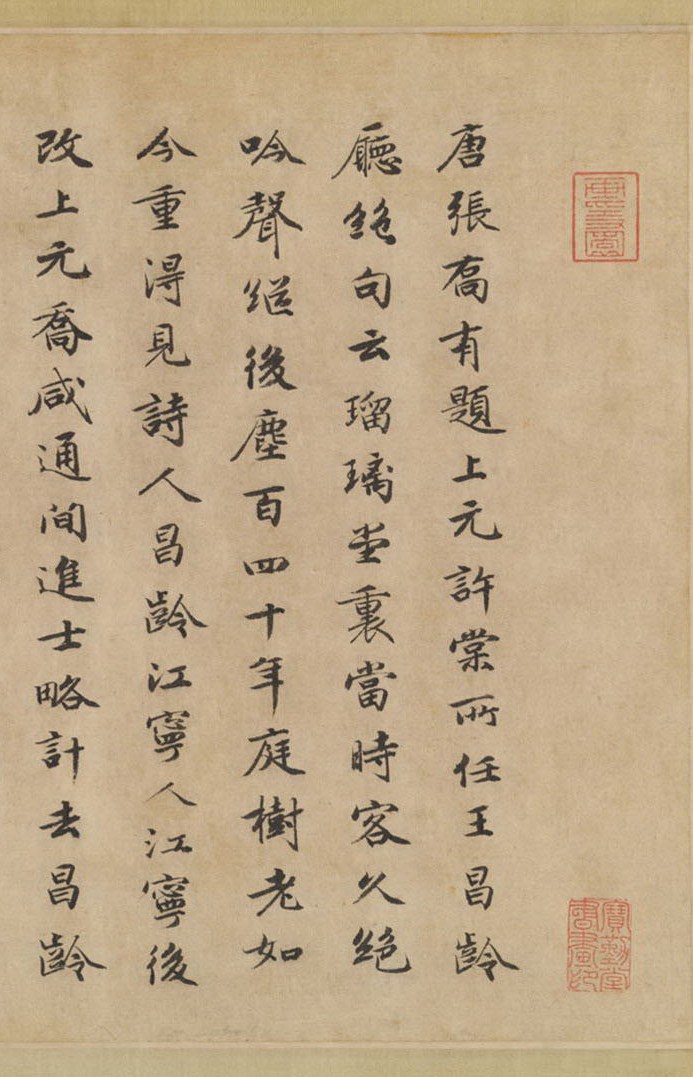 唐張喬有題上元許棠所任王昌齡
廳絶句云瑠璃堂裏當時客久絶
吟聲繼後塵百四十年庭樹老如
今重得見詩人昌齡江寧人江寧後
改上元喬咸通間進士略計去昌齡
寶勤堂
書畫印